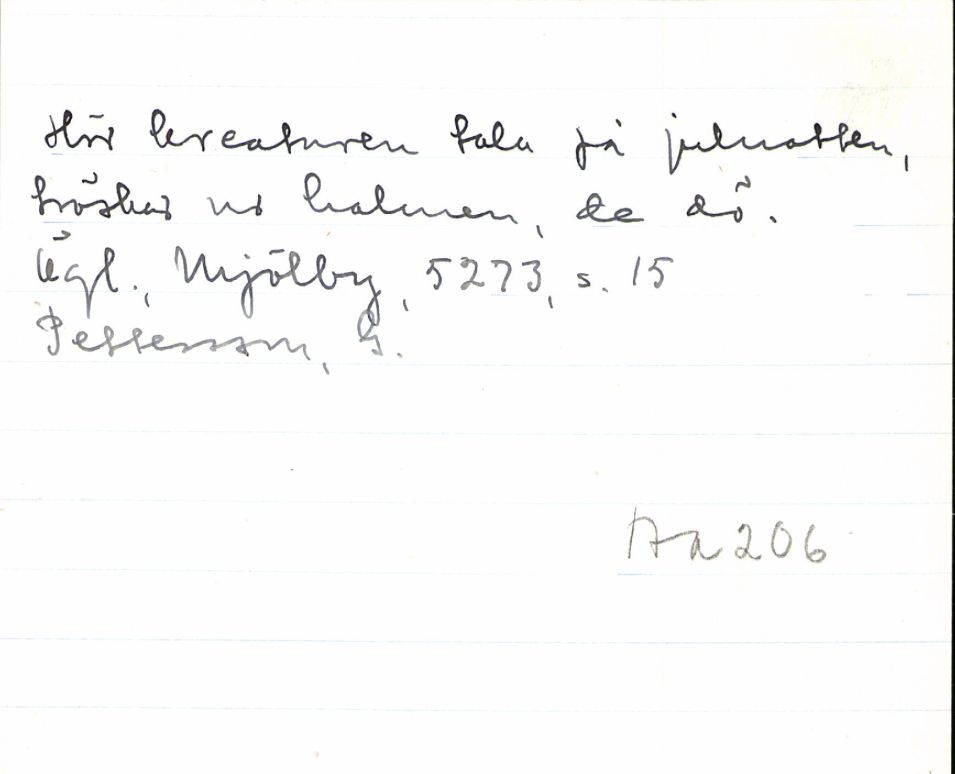 Hör kreaturen tala på julnatten,
tröskar ur halmen, de dö.
Ögl., Mjölby, 5273, s. 15
Pettersson, G.
Aa 206